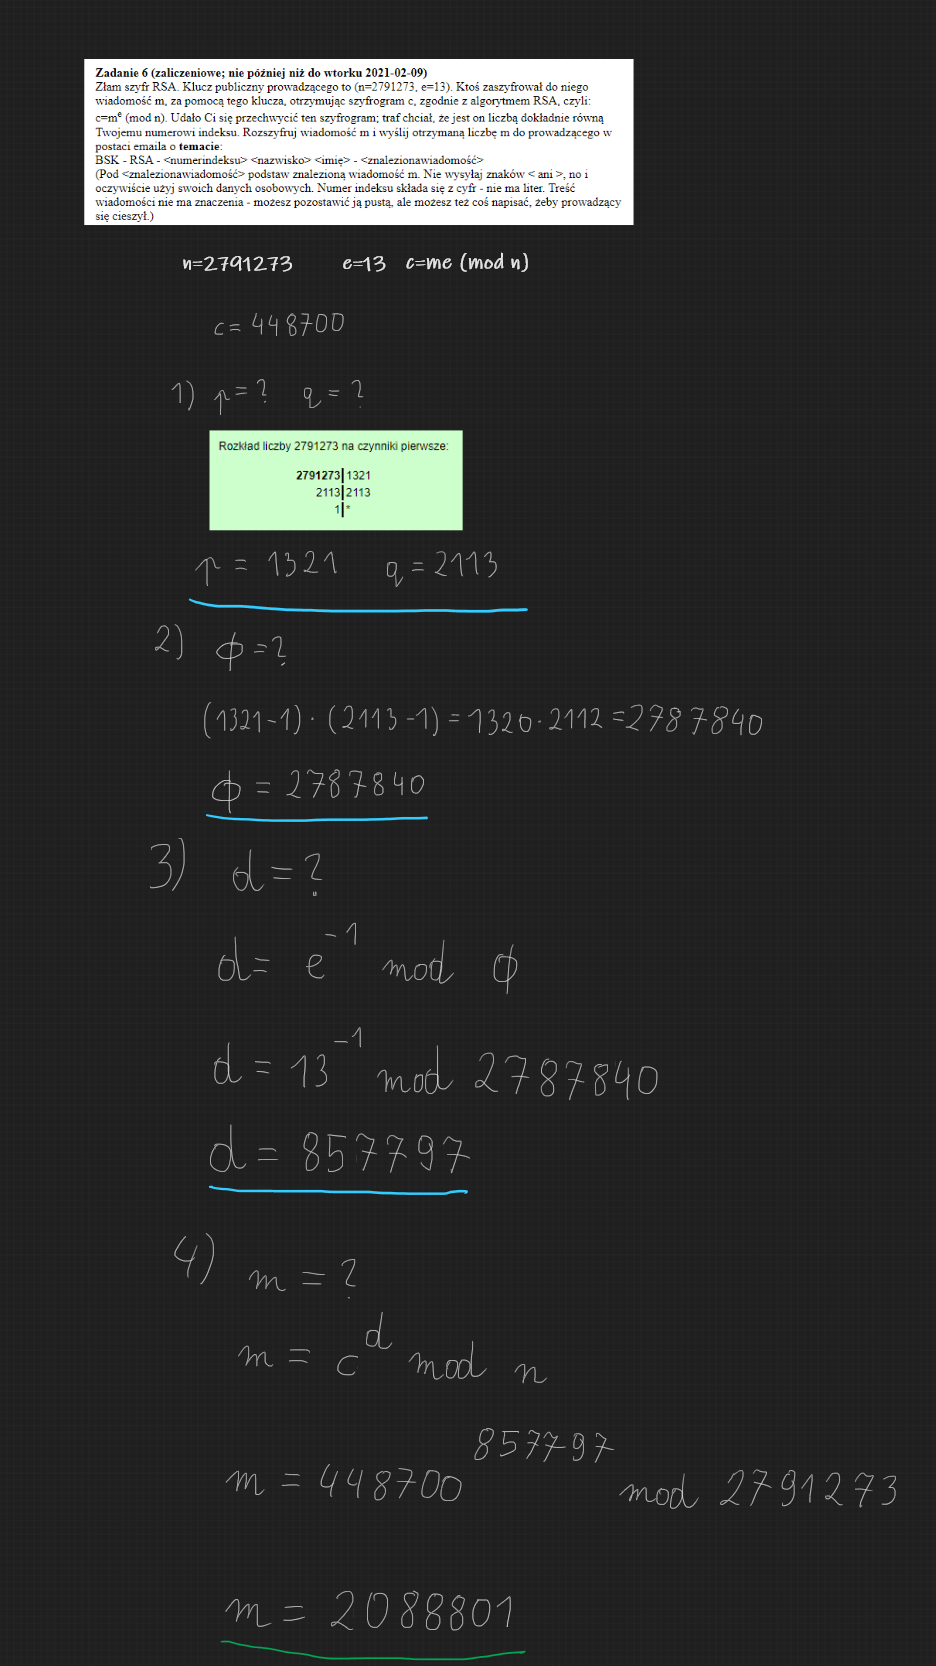 Zadanie 6 (zaliczeniowe; nie później niż do wtorku 2021-02-09)
Złam szyfr RSA. Klucz publiczny prowadzącego to (n=2791273, e=13). Ktoś zaszyfrował do niego
wiadomość m, za pomocą tego klucza, otrzymując szyfrogram c, zgodnie z algorytmem RSA, czyli:
c=m^e (mod n). Udało Ci się przechwycić ten szyfrogram; traf chciał, że jest on liczbą dokładnie równą
Twojemu numerowi indeksu. Rozszyfruj wiadomość m i wyślij otrzymaną liczbę m do prowadzącego w
postaci emaila o temacie:
BSK - RSA - <numerindeksu> <nazwisko> <imię> - <znalezionawiadomość>
(Pod <znalezionawiadomość> podstaw znalezioną wiadomość m. Nie wysyłaj znaków < ani >, no i
oczywiście użyj swoich danych osobowych. Numer indeksu składa się z cyfr - nie ma liter. Treść
wiadomości nie ma znaczenia - możesz pozostawić ją pustą, ale możesz też coś napisać, żeby prowadzący
się cieszył.)
n=2791273 e=13 c=me (mod n)
c = 448700
1) p = ? q = ?
Rozkład liczby 2791273 na czynniki pierwsze:
2791273|1321
2113|2113
1|*
p = 1321 q = 2113
2) ϕ = ?
(1321-1) · (2113-1) = 1320 · 2112 = 2787840
ϕ = 2787840
3) d = ?
d = e^-1 mod ϕ
d = 13^-1 mod 2787840
d = 857797
4) m = ?
m = c^d mod n
m = 448700^857797 mod 2791273
m = 2088801